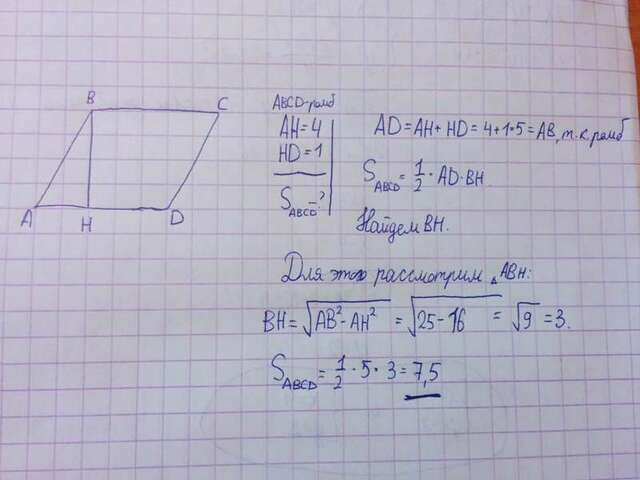 B
C
A
H
D
ABCD-ромб
AH=4
HD=1
S_ABCD-?
AD=AH+HD=4+1=5=AB, т.к. ромб
S_ABCD=1/2·AD·BH.
Найдем BH.
Для этого рассмотрим △ABH:
BH=√AB²-AH² = √25-16 = √9 =3.
S_ABCD=1/2·5·3=7,5